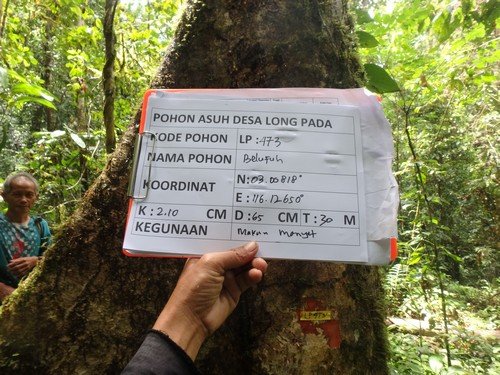 POHON ASUH DESA LONG PADA
KODE POHON LP: 173
NAMA POHON Belupuh
KOORDINAT N: 03.00818°
E: 116.12.650°
K: 2.10 CM D: 65 CM T: 30 M
KEGUNAAN Makan Monyet